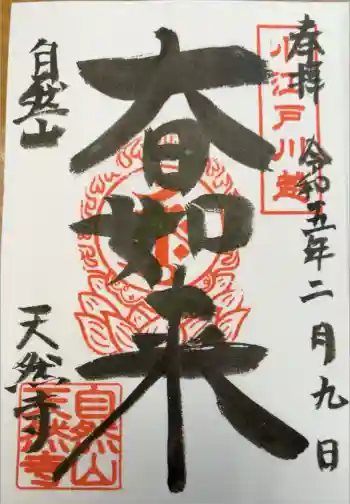 奉拝 令和五年二月九日
小江戸川越
大日如来
自然山
天然寺
自然山
天然寺